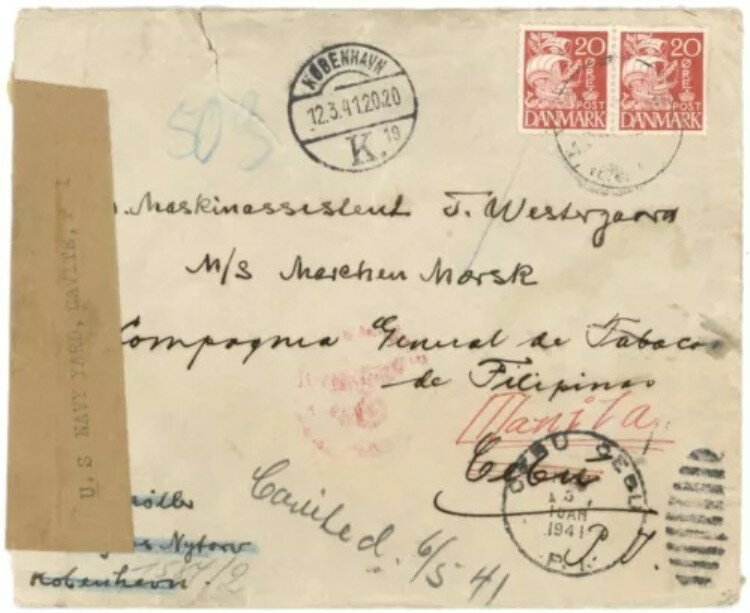 20 ØRE POST DANMARK
20 ØRE POST DANMARK
KØBENHAVN
12.3.41.20.20
K. 19
503
Maskinassistent J. Westergaard
M/S Marchen Mærsk
Compagnia General de Tabacos
de Filipinas
Manila
Cebu
P. I.
CEBU CEBU
1941
P. I.
U. S NAVY YARD, CAVITE, P I
Nytorv
København
1587/2
6/5 41